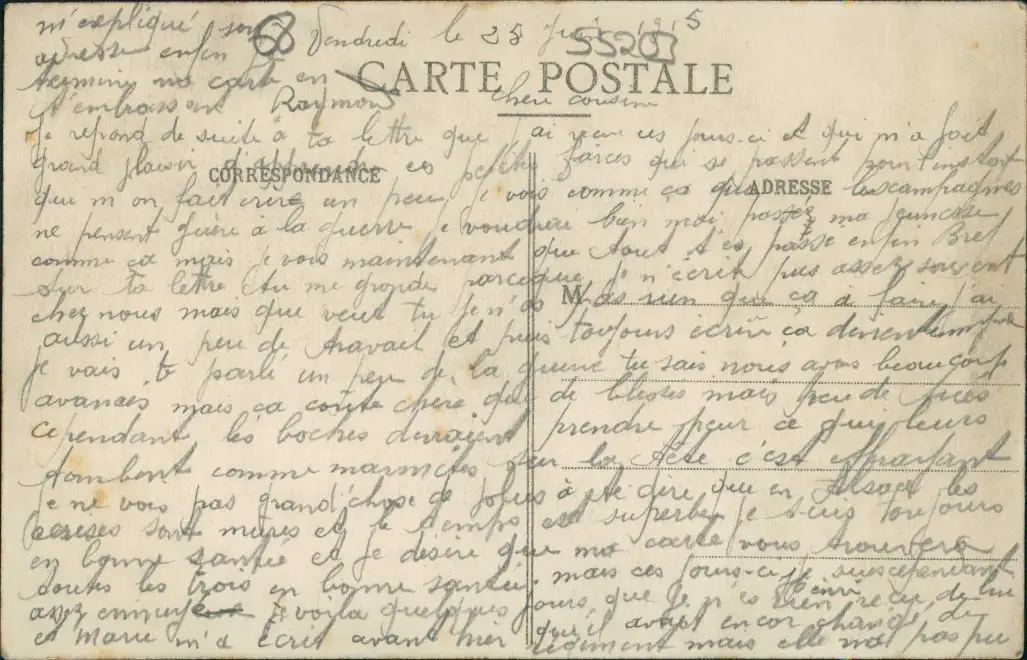 Vendredi le 25 Juin 1915
68
55207
CARTE POSTALE
CORRESPONDANCE
ADRESSE
M
chère cousine
Je repond de suite à ta lettre que j'ai reçu ces jours-ci et qui m'a fait
grand plaisir d'apprendre ces petites farces qui se passent pour l'instant
qui m'on fait rire un peu, je vois comme ça que les campagnes
ne pensent guère à la guerre, je voudrai bien moi passez ma jeunesse
comme ça mais je vois maintenant que tout est passé enfin Bref
sur ta lettre tu me gronde parceque je n'écrit pas assez souvent
chez nous mais que veut tu je n'ais pas rien que ça à faire, j'ai
aussi un peu de travail et puis toujours écrire ça devien
Je vais te parlé un peu de la guerre tu sais nous avons beaucoup
avances mais ça coûte chère que de blesses mais peu de
cependant les boches devraient prendre peur ce qui leurs
tombent comme marmites sur la tête c'est effrayant
Je ne vois pas grand chose de plus à te dire que en Alsace les
cerises sont mures et le temps est superbe je suis toujours
en bonne santée et je désire que ma carte vous trouvera
toutes les trois en bonne santée. mais ces jours-ci je suis cependant
assez ennuyé voila quelques jours que je n'es rien reçu de lui
et Marie m'a écrit avant hier qu'il avait encor changé de
régiment mais elle m'a pas pu
m'expliqué son
adresse enfin je
termine ma carte en
t'embrassant Raymond